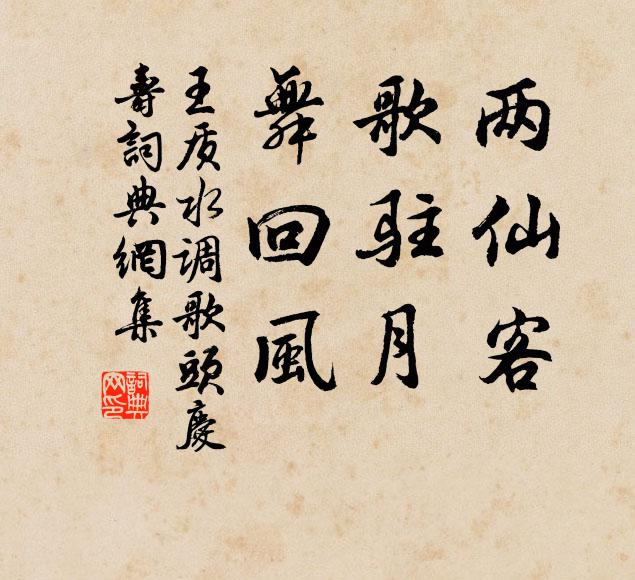 两仙客
歌驻月
舞回風
王质水调歌头慶
壽詞典網集
詞典
网印